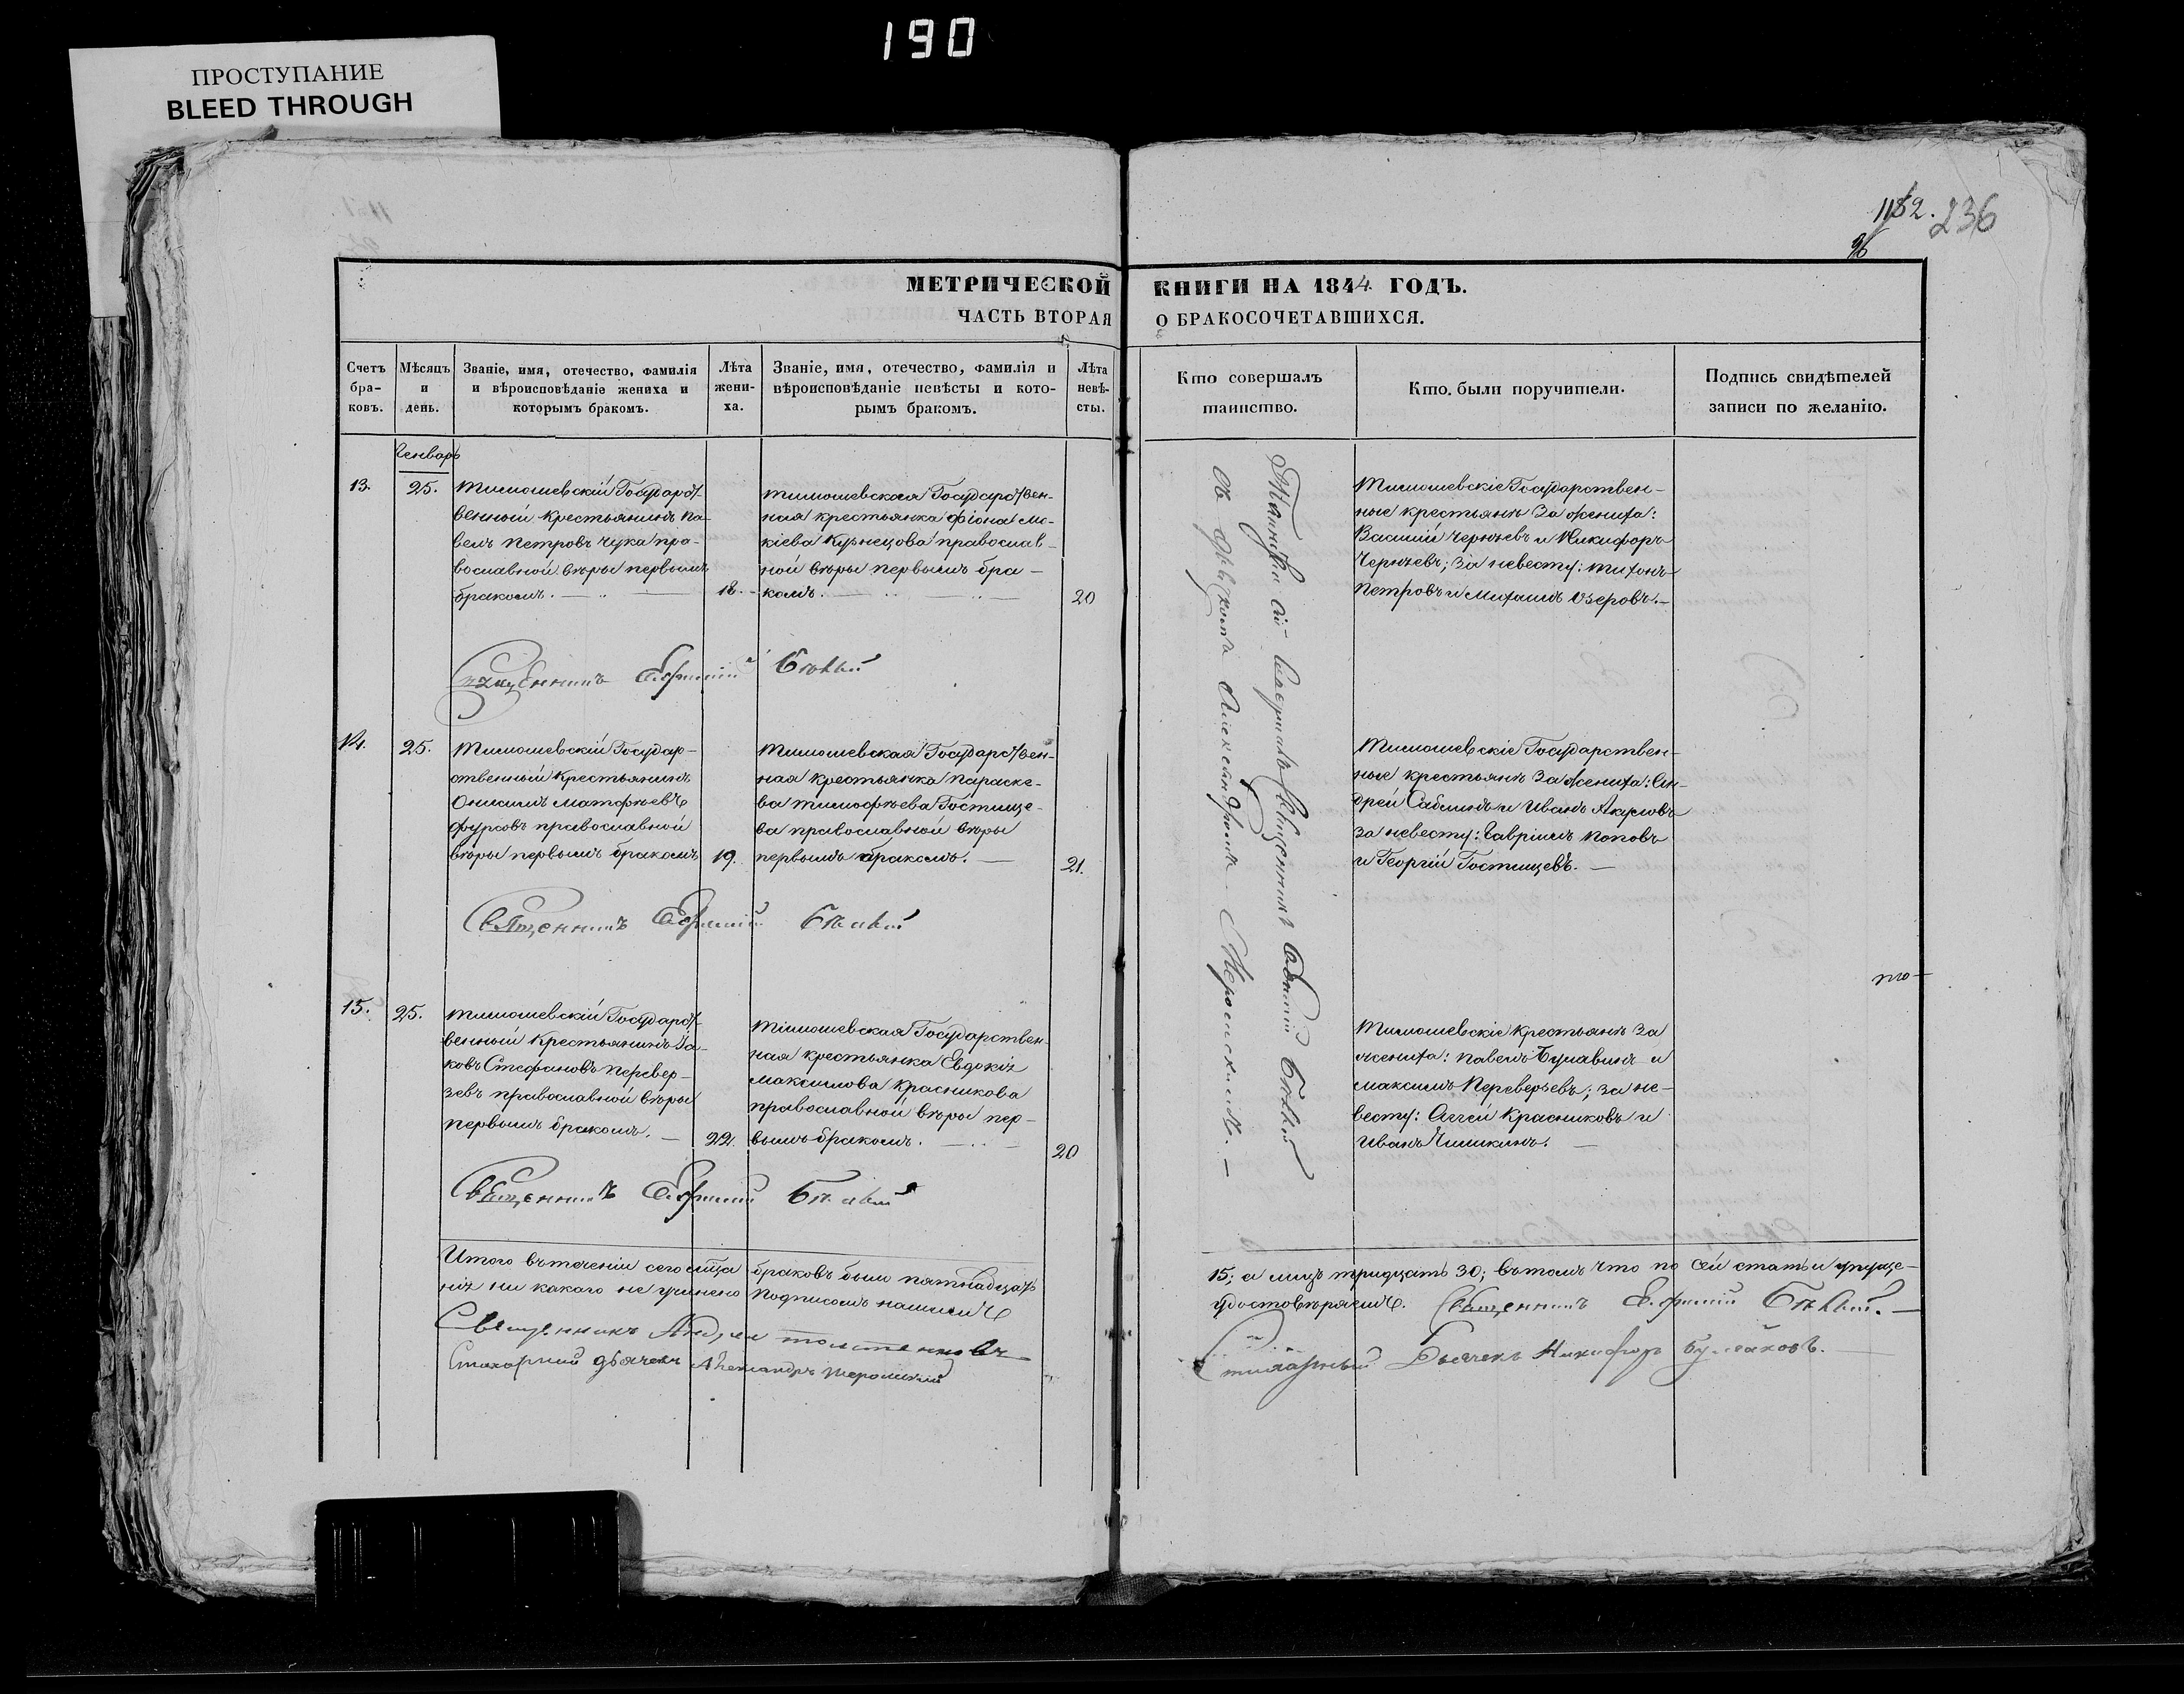 190
ПРОСТУПАНИЕ
BLEED THROUGH
1182. 236
96
МЕТРИЧЕСКОЙ КНИГИ НА 1844 ГОДЪ.
ЧАСТЬ ВТОРАЯ О БРАКОСОЧЕТАВШИХСЯ.
Счетъ
бра-
ковъ.
Мѣсяцъ
и
день.
Званіе, имя, отечество, фамилія
и вѣроисповѣданіе жениха и
которымъ бракомъ.
Лѣта
жени-
ха.
Званіе, имя, отечество, фамилія и
вѣроисповѣданіе невѣсты и кото-
рымъ бракомъ.
Лѣта
невѣ-
сты.
Кто совершалъ
таинство.
Кто были поручители.
Подпись свидѣтелей
записи по желанію.
Генварь
13.
25.
Тимошевскій Государст-
венный крестьянинъ Па-
велъ Петровъ Чука пра-
вославной вѣры первымъ
бракомъ.
18.
Тимошевская Государствен-
ная крестьянка Фіона Мо-
кіева Кузнецова православ-
ной вѣры первымъ бра-
комъ.
20
Тимошевскіе Государствен-
ные крестьянѣ за жениха:
Василій Черячевъ и Никифоръ
Черячевъ; за невесту: Тихонъ
Петровъ и Михаилъ Озеровъ.
Священникъ Евфимій Бѣлый
14.
25.
Тимошевскій Государ-
ственный крестьянинъ
Онисимъ Матфѣевъ
Фурсовъ православной
вѣры первымъ бракомъ
19.
Тимошевская Государствен-
ная крестьянка Параске-
ва Тимофѣева Гостище-
ва православной вѣры
первымъ бракомъ.
21.
Тимошевскіе Государствен-
ные крестьянѣ за жениха: Ан-
дрей Саблинъ и Иванъ Акуловъ
за невесту: Гавріилъ Поповъ
и Георгій Гостищевъ.
Священникъ Евфимій Бѣлый
15.
25.
Тимошевскій Государст-
венный Крестьянинъ Іа-
ковъ Стефановъ Перевер-
зевъ православной вѣры
первымъ бракомъ.
22.
Тимошевская Государствен-
ная крестьянка Евдокія
Максимова Красникова
православной вѣры пер-
вымъ бракомъ.
20
Тимошевскіе крестьянѣ за
жениха: Павелъ Булавинъ и
Максимъ Переверзевъ; за не-
весту: Аггей Красниковъ и
Иванъ Чишкинъ.
Священникъ Евфимій Бѣлый
Таинства сіи совершалъ Священникъ Евфимій Бѣлый
съ дьячкомъ Александромъ
Итого въ теченіи сего мѣсяца браковъ было пятнадцать 15; а лицъ тридцать 30; въ томъ что по сей статьи упуще-
нія ни какого не учинено подписомъ нашимъ удостовѣряемъ. Священникъ Евфимій Бѣлый.
Священникъ Андрей
Стихарный дьячекъ Александръ
Стихарный Дьячекъ Никифоръ